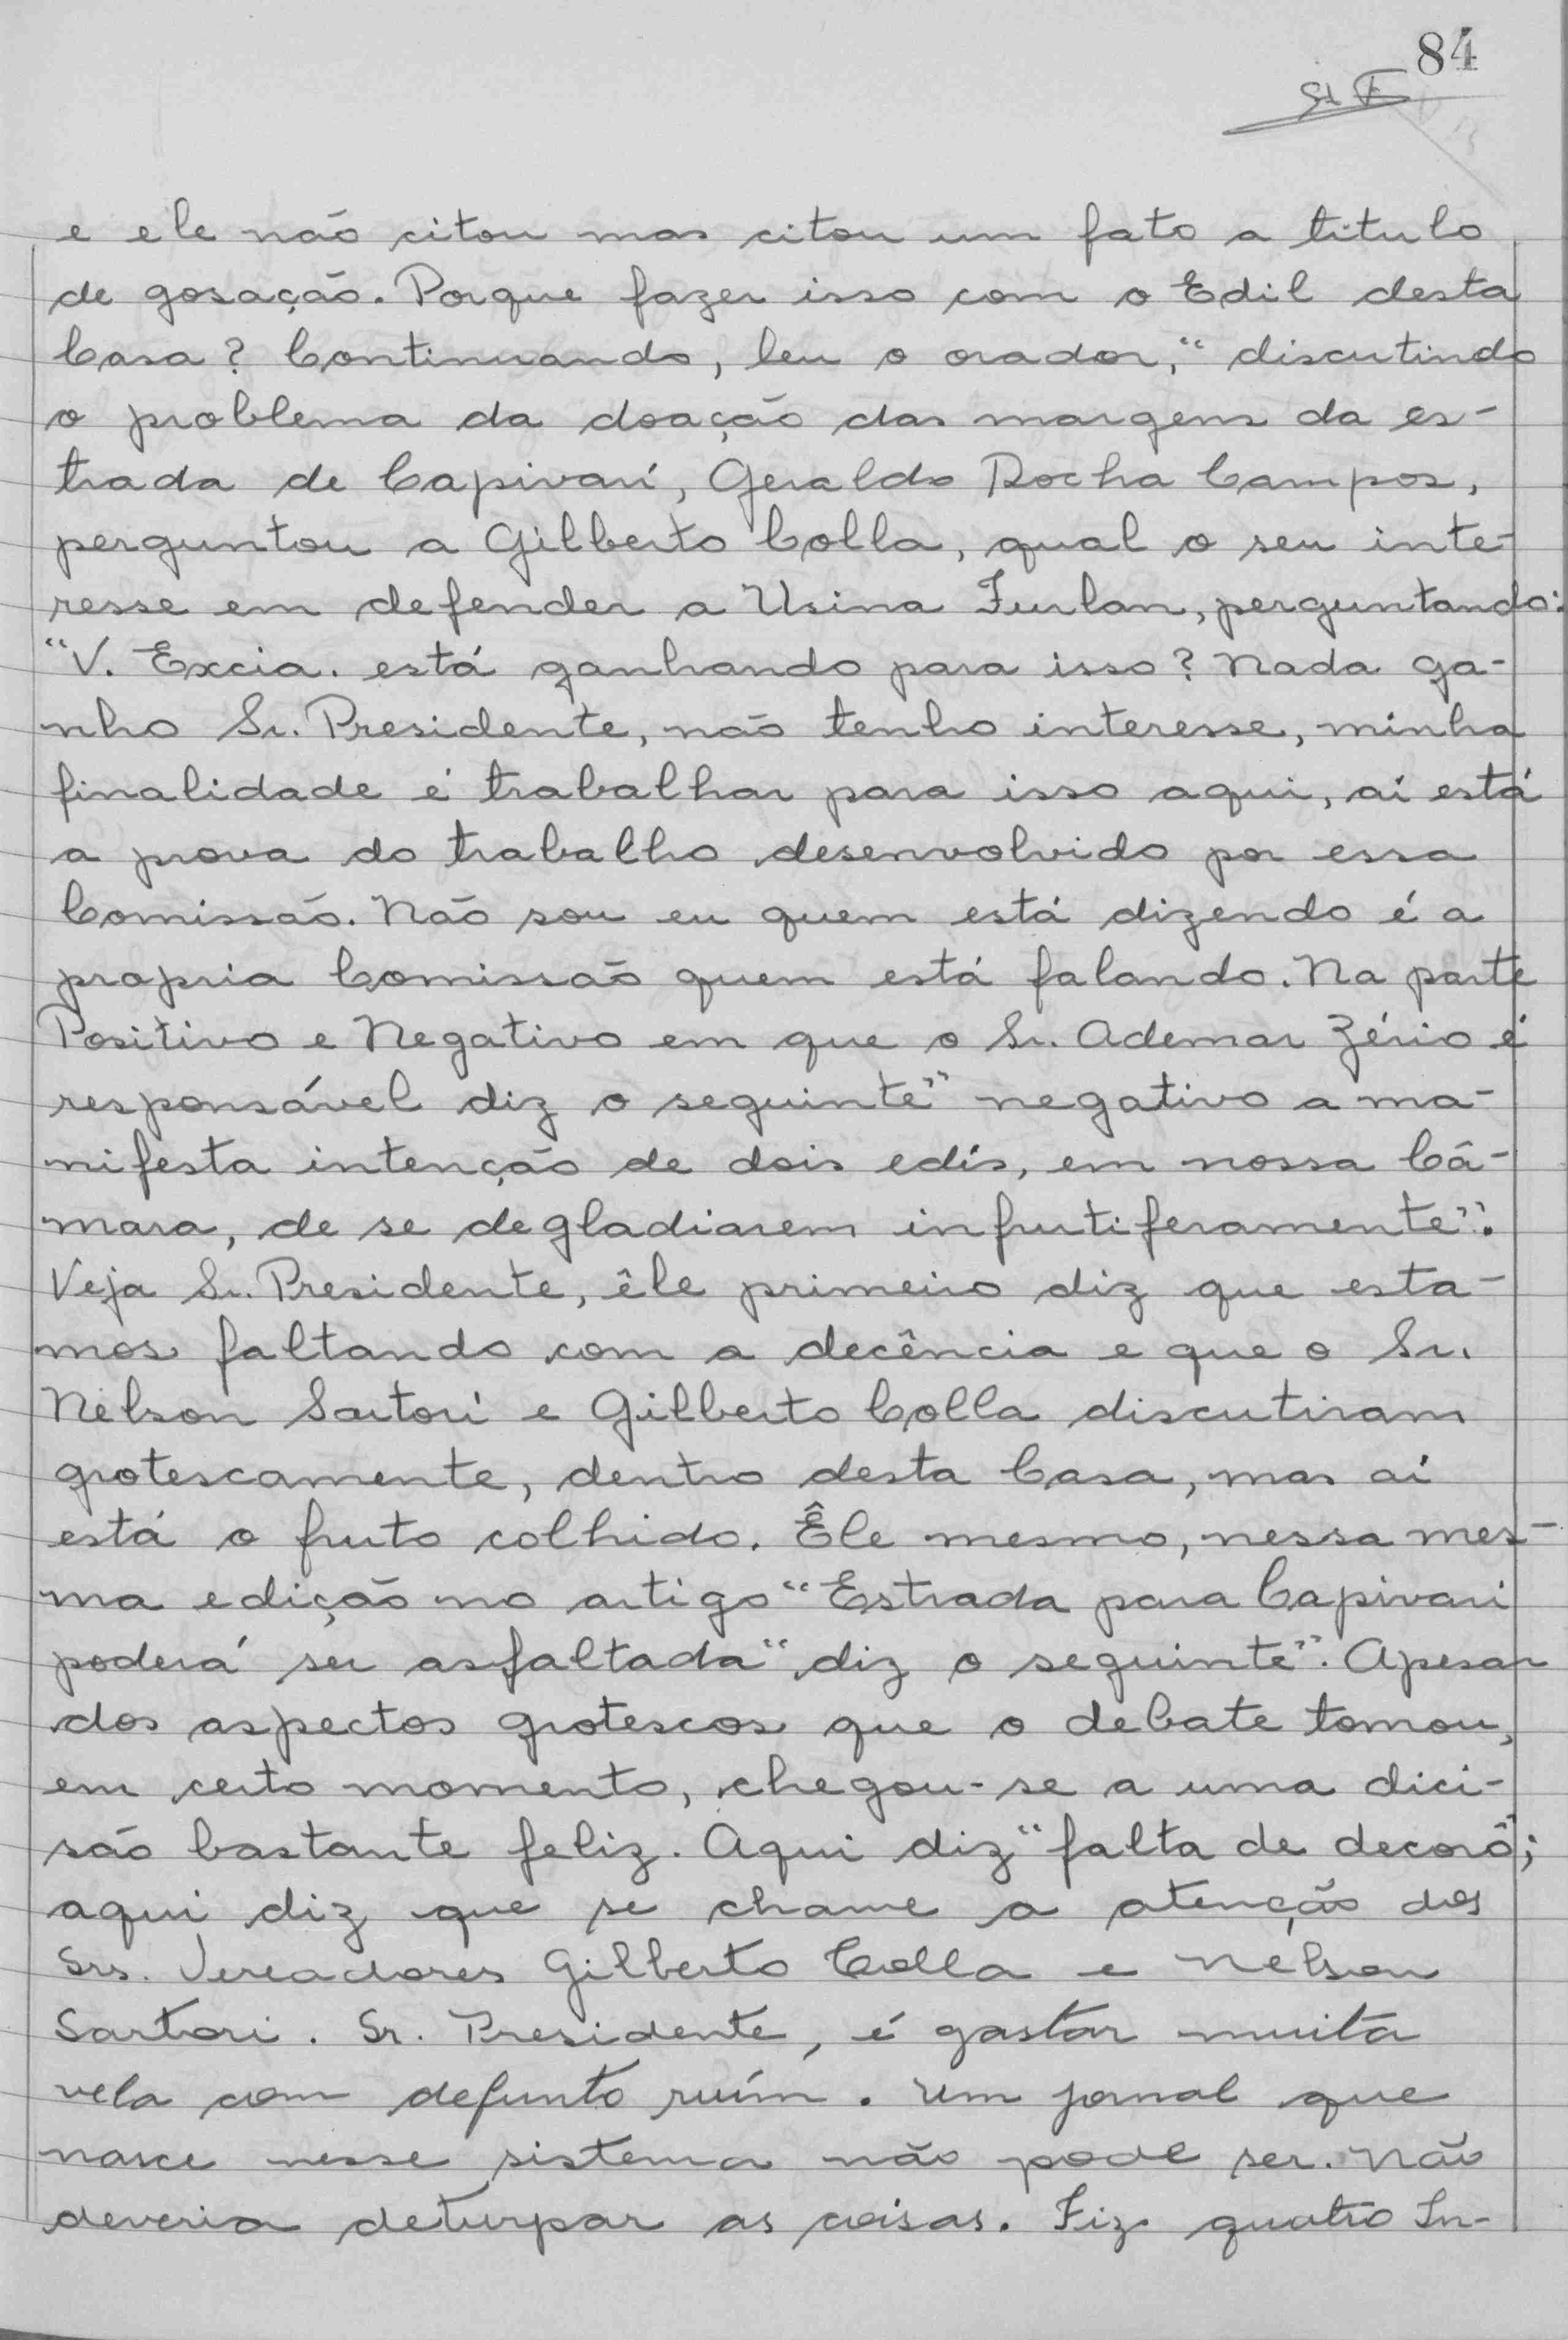 84
e ele não citou mas citou um fato a titulo
de gosação. Porque fazer isso com o Edil desta
Casa? Continuando, leu o orador, “discutindo
o problema da doação das margens da es-
trada de Capivarí, Geraldo Rocha Campos,
perguntou a Gilberto Colla, qual o seu inte-
resse em defender a Usina Furlan, perguntando:
“V. Excia. está ganhando para isso? Nada ga-
nho Sr. Presidente, não tenho interesse, minha
finalidade é trabalhar para isso aqui, aí está
a prova do trabalho desenvolvido por essa
Comissão. Não sou eu quem está dizendo é a
propria Comissão quem está falando. Na parte
Positivo e Negativo em que o Sr. Ademar Zério é
responsável diz o seguinte” negativo a ma-
nifesta intenção de dois edís, em nossa Câ-
mara, de se degladiarem infrutiferamente”.
Veja Sr. Presidente, êle primeiro diz que esta-
mos faltando com a decência e que o Sr.
Nélson Sartori e Gilberto Colla discutiram
grotescamente, dentro desta Casa, mas aí
está o fruto colhido. Êle mesmo, nessa mes-
ma edição no artigo “Estrada para Capivari
poderá ser asfaltada“ diz o seguinte”. Apesar
dos aspectos grotescos que o debate tomou,
em certo momento, chegou-se a uma dici-
são bastante feliz. Aqui diz “falta de decoro”;
aqui diz que se chame a atenção dos
Srs. Vereadores Gilberto Colla e Nelson
Sartori. Sr. Presidente, é gastar muita
vela com defunto ruím. Um jornal que
nasce nesse sistema não pode ser. Não
deveria deturpar as coisas. Fiz quatro In-